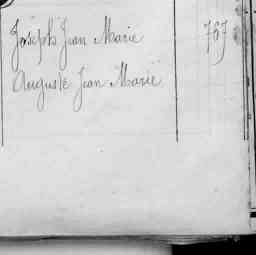 Joseph Jean Marie 767
Auguste Jean Marie